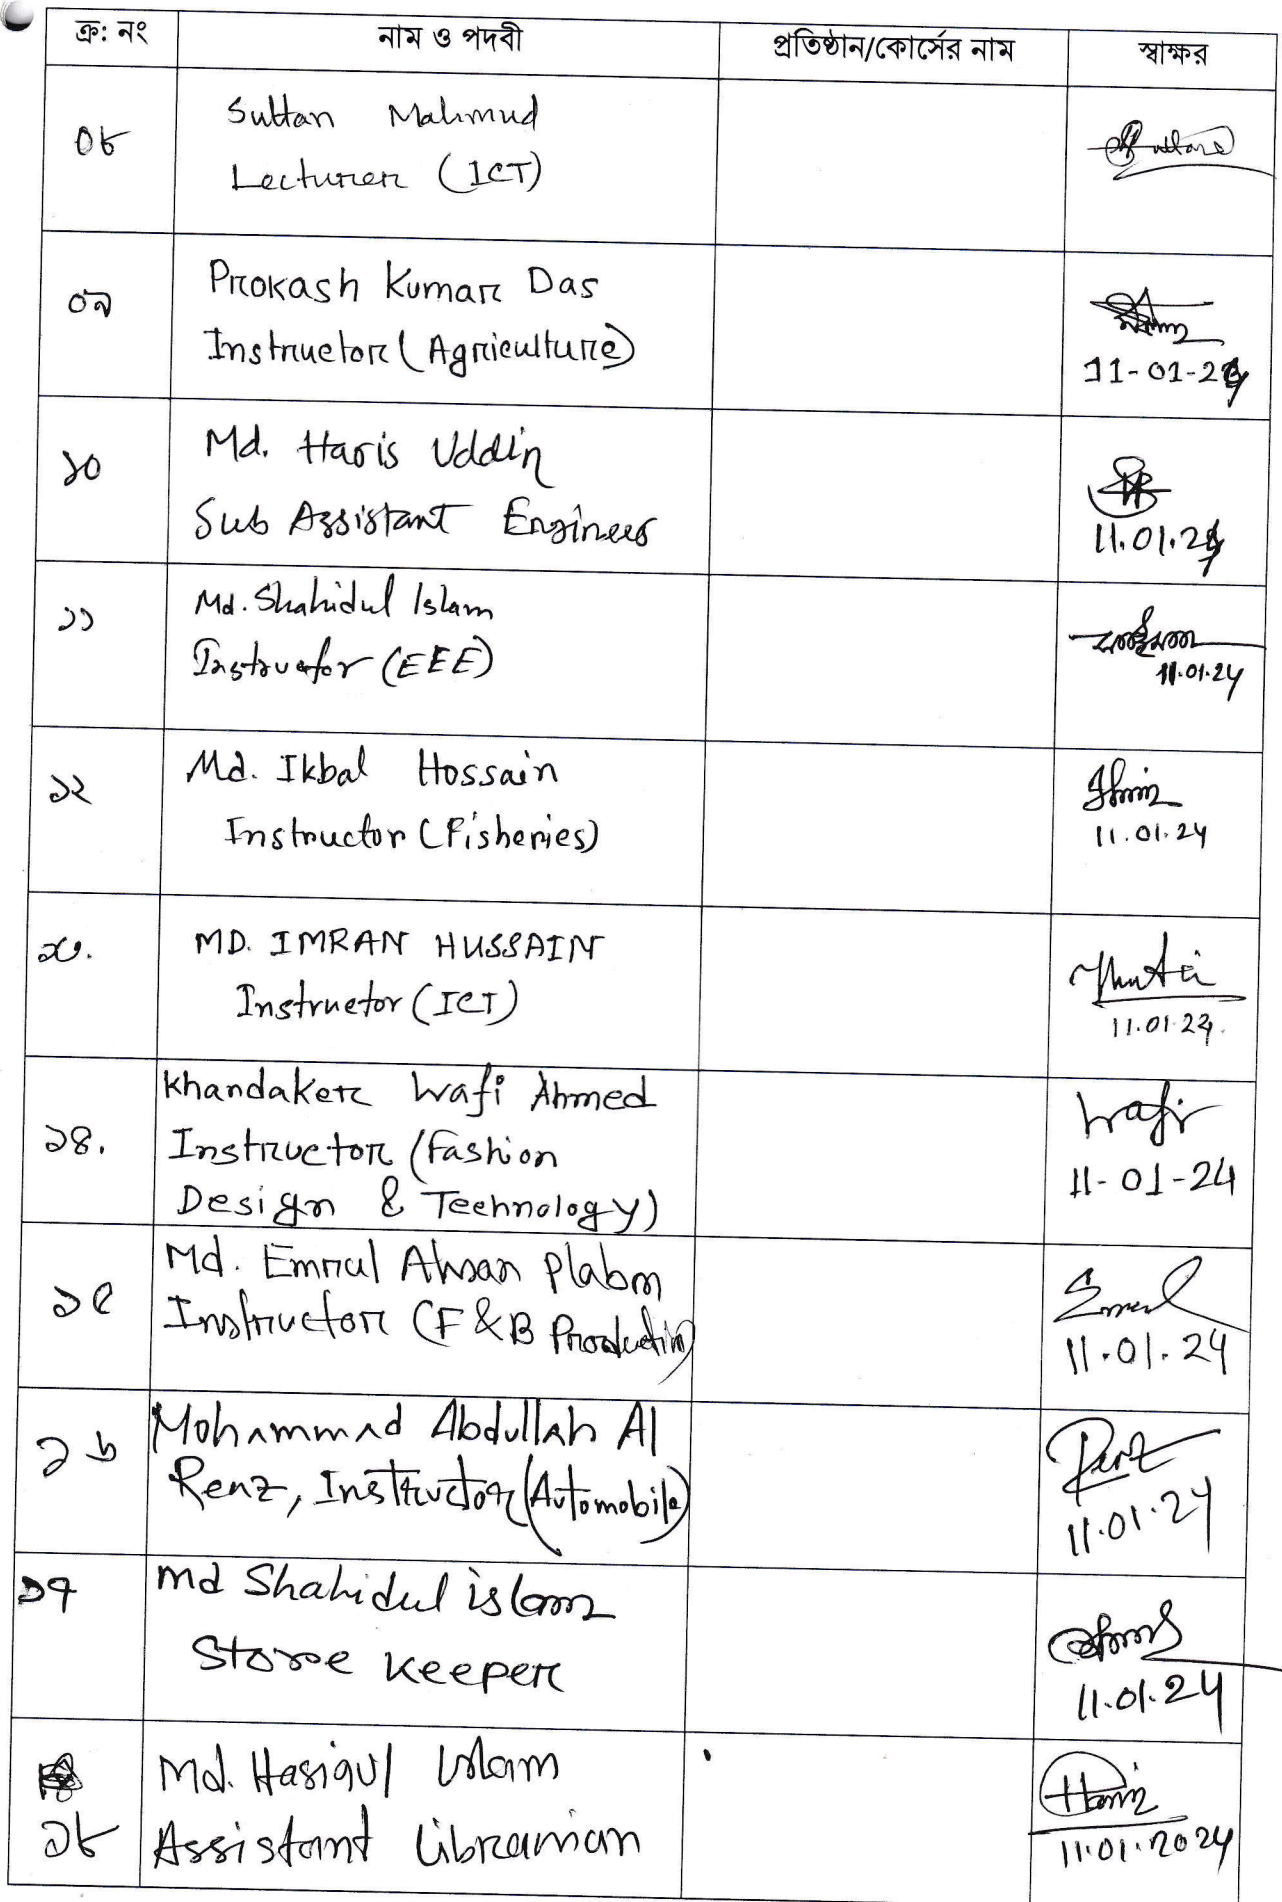 ক্র: নং নাম ও পদবী প্রতিষ্ঠান/কোর্সের নাম স্বাক্ষর
০৮ Sultan Mahmud
Lecturer (ICT)
০৯ Prokash Kumar Das
Instructor (Agriculture)
11-01-24
১০ Md. Haris Uddin
Sub Assistant Engineer
11.01.24
১১ Md. Shahidul Islam
Instructor (EEE)
11.01.24
১২ Md. Ikbal Hossain
Instructor (Fisheries)
11.01.24
১৩. MD. IMRAN HUSSAIN
Instructor (ICT)
11.01.24.
১৪. Khandaker Wafi Ahmed Wafi
Instructor (Fashion
Design & Technology) 11-01-24
১৫ Md. Emrul Ahsan Plabon Emrul
Instructor (F & B Production) 11.01.24
১৬ Mohammad Abdullah Al
Renz, Instructor (Automobile) Renz
11.01.24
১৭ Md Shahidul islam
Store Keeper
11.01.24
১৮ Md. Hasiqul Islam
Assistant Librarian
11.01.2024